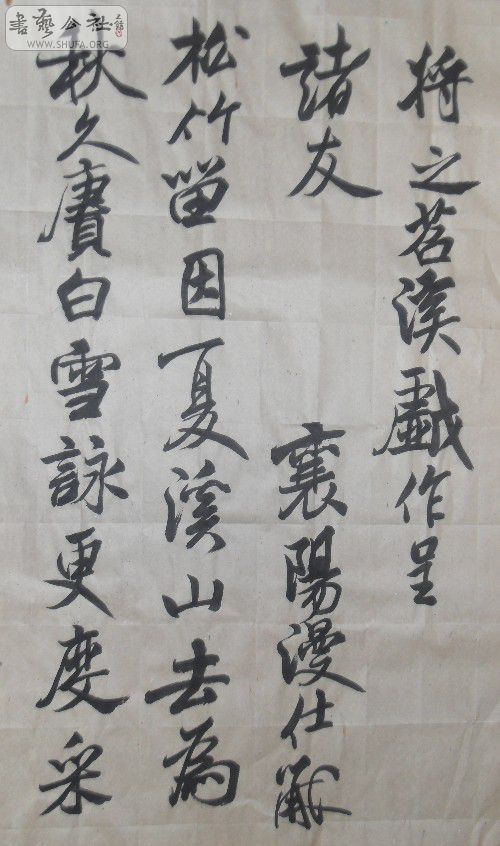 将之苕溪戯作呈
諸友
襄陽漫仕黻
松竹留因夏溪山去為
秋久賡白雪詠更度采
書藝公社
WWW.SHUFA.ORG